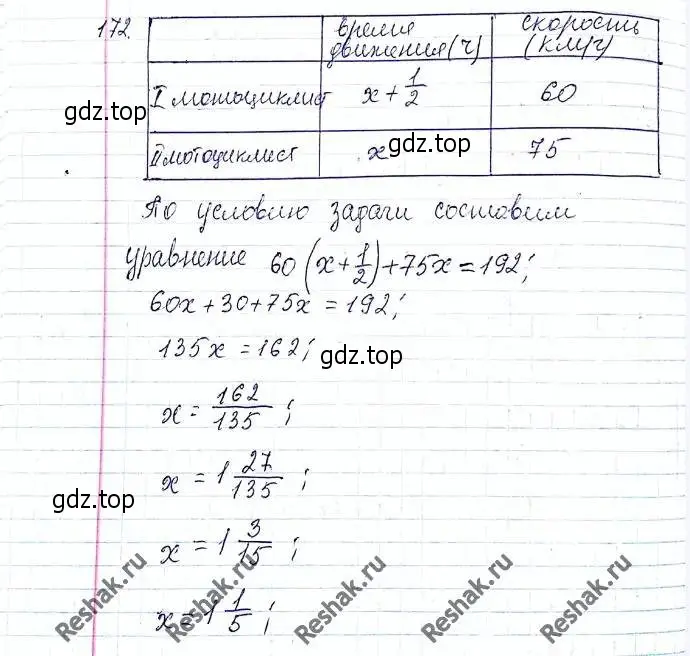 172.
время движения(ч)
скорость (км/ч)
I мотоциклист x + 1/2 60
gdz.top
II мотоциклист x 75
gdz.top
По условию задачи составим
уравнение 60(x + 1/2) + 75x = 192;
60x + 30 + 75x = 192;
135x = 162;
gdz.top
x = 162/135 ;
x = 1 27/135 ;
gdz.top
x = 1 3/15 ;
x = 1 1/5 ;
Reshak.ru Reshak.ru Reshak.ru Reshak.ru